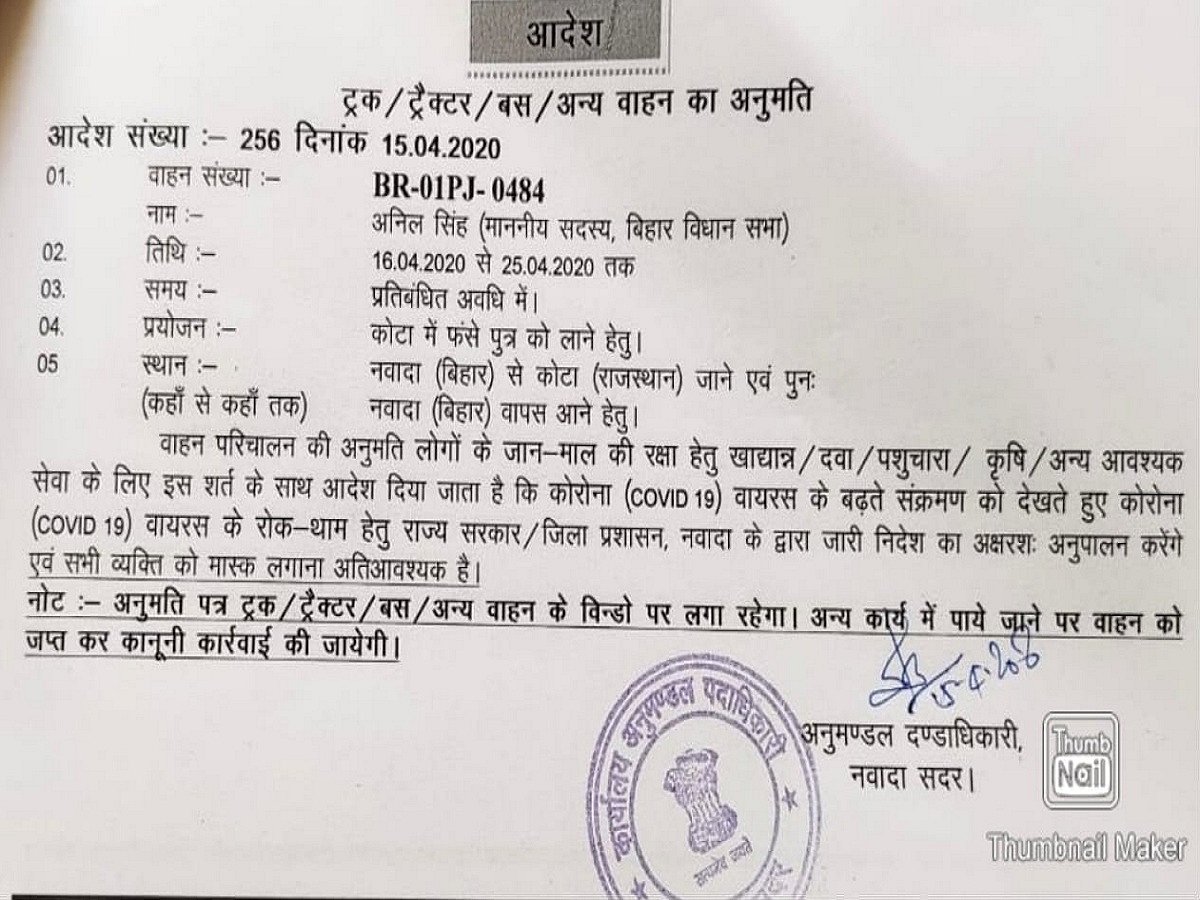 आदेश
ट्रक/ट्रैक्टर/बस/अन्य वाहन का अनुमति
आदेश संख्या :– 256 दिनांक 15.04.2020
01. वाहन संख्या :– BR-01PJ-0484
नाम :– अनिल सिंह (माननीय सदस्य, बिहार विधान सभा)
02. तिथि :– 16.04.2020 से 25.04.2020 तक
03. समय :– प्रतिबंधित अवधि में।
04. प्रयोजन :– कोटा में फंसे पुत्र को लाने हेतु।
05 स्थान :– नवादा (बिहार) से कोटा (राजस्थान) जाने एवं पुनः
(कहाँ से कहाँ तक) नवादा (बिहार) वापस आने हेतु।
वाहन परिचालन की अनुमति लोगों के जान–माल की रक्षा हेतु खाद्यान्न/दवा/पशुचारा/ कृषि/अन्य आवश्यक
सेवा के लिए इस शर्त के साथ आदेश दिया जाता है कि कोरोना (COVID 19) वायरस के बढ़ते संक्रमण को देखते हुए कोरोना
(COVID 19) वायरस के रोक–थाम हेतु राज्य सरकार/जिला प्रशासन, नवादा के द्वारा जारी निदेश का अक्षरशः अनुपालन करेंगे
एवं सभी व्यक्ति को मास्क लगाना अतिआवश्यक है।
नोट :– अनुमति पत्र ट्रक/ट्रैक्टर/बस/अन्य वाहन के विन्डो पर लगा रहेगा। अन्य कार्य में पाये जाने पर वाहन को
जप्त कर कानूनी कार्रवाई की जायेगी।
अनुमण्डल दण्डाधिकारी,
नवादा सदर।
कार्यालय अनुमण्डल पदाधिकारी
सत्यमेव जयते
Thumb
Nail
Thumbnail Maker